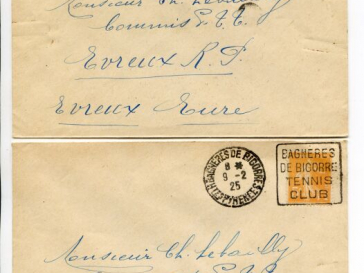 Monsieur Ch. Lebailly
Commis P.T.T.
Evreux R. P.
Evreux Eure
BAGNERES DE BIGORRE
8 *
9 - 2
25
HTES PYRENEES
BAGNERES
DE BIGORRE
TENNIS
CLUB
Monsieur Ch. Lebailly